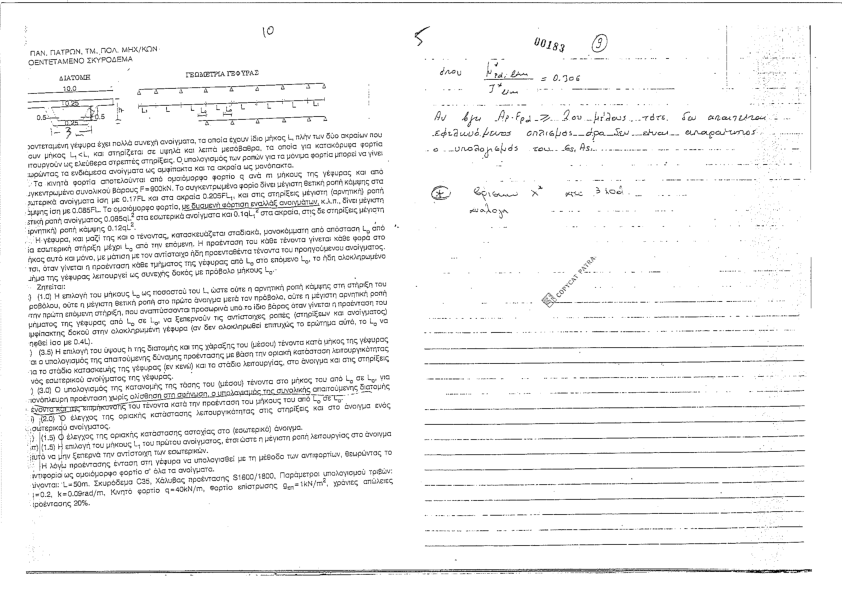 10
ΠΑΝ. ΠΑΤΡΩΝ, ΤΜ. ΠΟΛ. ΜΗΧ/ΚΩΝ
ΟΕΝΤΕΤΑΜΕΝΟ ΣΚΥΡΟΔΕΜΑ
ΔΙΑΤΟΜΗ
ΓΕΩΜΕΤΡΙΑ ΓΕΦΥΡΑΣ
10.0
0.25
0.5
0.25
3
οεντεταμενη γέφυρα έχει πολλά συνεχή ανοίγματα, τα οποία έχουν ίδιο μήκος L, πλην των δύο ακραίων που
ουν μήκος L₁<L, και στηρίζεται σε υψηλά και λεπτά μεσόβαθρα, τα οποία για κατακόρυφα φορτία
ιτουργούν ως ελεύθερα στρεπτές στηρίξεις. Ο υπολογισμός των ροπών για τα μόνιμα φορτία μπορεί να γίνει
ωρώντας τα ενδιάμεσα ανοίγματα ως αμφίπακτα και τα ακραία ως μονόπακτα.
Τα κινητά φορτία αποτελούνται από ομοιόμορφο φορτίο q ανά m μήκους της γέφυρας και από
υγκεντρωμένο συνολικού βάρους F=800kN. Το συγκεντρωμένο φορτίο δίνει μέγιστη θετική ροπή κάμψης στα
σωτερικά ανοίγματα ίση με 0.17FL και στα ακραία 0.205FL₁, και στις στηρίξεις μέγιστη (αρνητική) ροπή
άμψης ίση με 0.085FL. Το ομοιόμορφο φορτίο, με δυσμενή φόρτιση εναλλάξ ανοιγμάτων, κ.λ.π., δίνει μέγιστη
ετική ροπή ανοίγματος 0.085qL² στα εσωτερικά ανοίγματα και 0.1qL₁² στα ακραία, στις δε στηρίξεις μέγιστη
αρνητική) ροπή κάμψης 0.12qL².
Η γέφυρα, και μαζί της και ο τένοντας, κατασκευάζεται σταδιακά, μονοκόμματη από απόσταση L₀ από
ία εσωτερική στήριξη μέχρι L₀ από την επόμενη. Η προένταση του κάθε τένοντα γίνεται κάθε φορά στο
ήκος αυτό και μόνο, με μάτιση με τον αντίστοιχα ήδη προενταθέντα τένοντα του προηγούμενου ανοίγματος.
τσι, όταν γίνεται η προένταση κάθε τμήματος της γέφυρας από L₀ στο επόμενο L₀, το ήδη ολοκληρωμένο
μήμα της γέφυρας λειτουργεί ως συνεχής δοκός με πρόβολο μήκους L₀.
Ζητείται:
) (1.0) Η επιλογή του μήκους L₀ ως ποσοστού του L, ώστε ούτε η αρνητική ροπή κάμψης στη στήριξη του
ροβόλου, ούτε η μέγιστη θετική ροπή στο πρώτο άνοιγμα μετά τον πρόβολο, ούτε η μέγιστη αρνητική ροπή
την πρώτη επόμενη στήριξη, που αναπτύσσονται προσωρινά υπό το ίδιο βάρος όταν γίνεται η προένταση του
μήματος της γέφυρας από L₀ σε L₀, να ξεπερνούν τις αντίστοιχες ροπές (στηρίξεων και ανοίγματος)
μφίπακτης δοκού στην ολοκληρωμένη γέφυρα (αν δεν ολοκληρωθεί επιτυχώς το ερώτημα αυτό, το L₀ να
ηφθεί ίσο με 0.4L).
) (3.5) Η επιλογή του ύψους h της διατομής και της χάραξης του (μέσου) τένοντα κατά μήκος της γέφυρας
αι ο υπολογισμός της απαιτούμενης δύναμης προέντασης με βάση την οριακή κατάσταση λειτουργικότητας
ια το στάδιο κατασκευής της γέφυρας (εν κενώ) και το στάδιο λειτουργίας, στο άνοιγμα και στις στηρίξεις
νός εσωτερικού ανοίγματος της γέφυρας.
) (3.0) Ο υπολογισμός της κατανομής της τάσης του (μέσου) τένοντα στο μήκος του από L₀ σε L₀, για
ονόπλευρη προένταση χωρίς ολίσθηση στη σφήνωση, ο υπολογισμός της συνολικής απαιτούμενης διατομής
ένοντα και της επιμήκυνσης του τένοντα κατά την προένταση του μήκους του από L₀ σε L₀.
) (2.0) Ο έλεγχος της οριακής κατάστασης λειτουργικότητας στις στηρίξεις και στο άνοιγμα ενός
σωτερικού ανοίγματος.
) (1.5) Ο έλεγχος της οριακής κατάστασης αστοχίας στο (εσωτερικό) άνοιγμα.
(1.5) Η επιλογή του μήκους L₁ του πρώτου ανοίγματος, έτσι ώστε η μέγιστη ροπή λειτουργίας στο άνοιγμα
αυτό να μην ξεπερνά την αντίστοιχη των εσωτερικών.
Η λόγω προέντασης ένταση στη γέφυρα να υπολογισθεί με τη μέθοδο των αντιφορτίων, θεωρώντας το
ντιφορτίο ως ομοιόμορφο φορτίο σ' όλα τα ανοίγματα.
ίνονται: L=50m. Σκυρόδεμα C35, Χάλυβας προέντασης S1600/1800, Παράμετροι υπολογισμού τριβών:
=0.2, k=0.09rad/m, Κινητό φορτίο q=40kN/m, Φορτίο επίστρωσης g=1kN/m², χρόνιες απώλειες
ροέντασης 20%.
5
00183
9
όπου
= 0.306
Αν έχω 2ου μέλους τότε δεν απαιτείται
εφελκυόμενος οπλισμός άρα δεν είναι απαραίτητος
ο υπολογισμός του
ανάλογα
COPYCAT PATRA